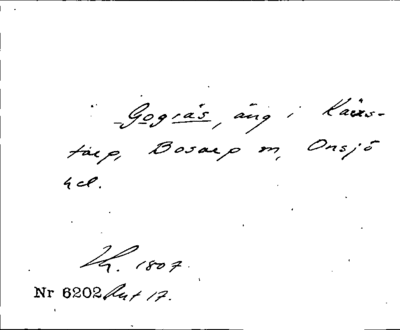 Gogräs, äng i Kärrs-
torp, Bosarp sn, Onsjö
hd.
1807
Nr 6202 17.